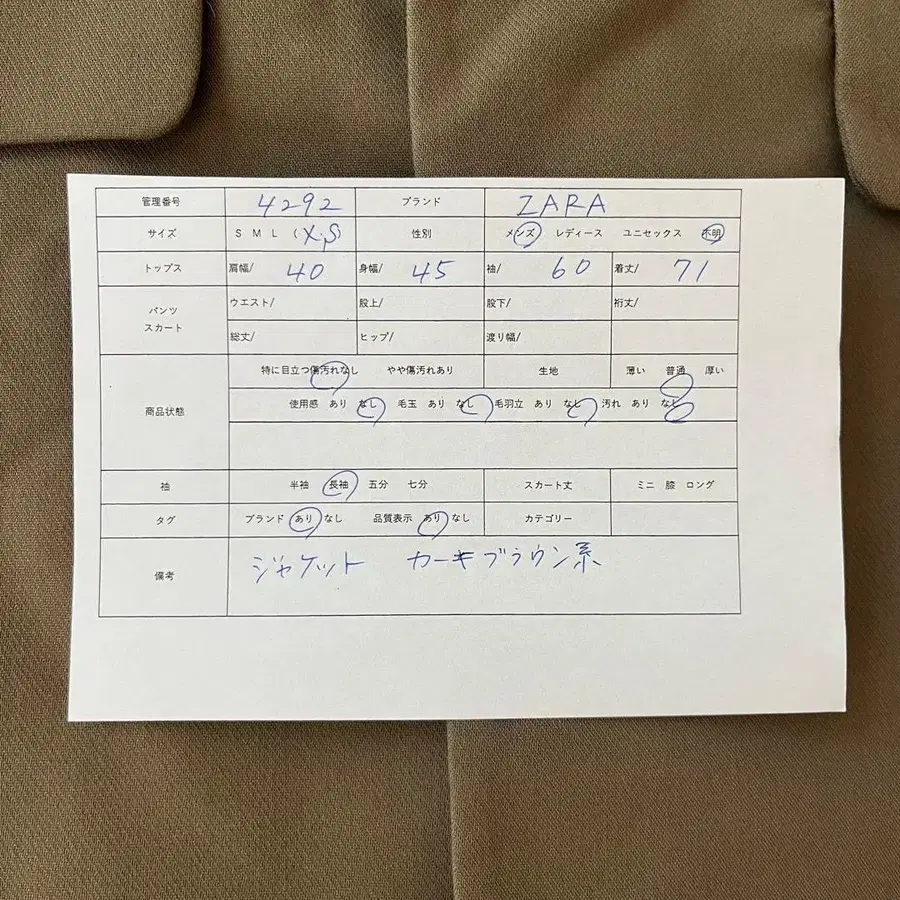 管理番号 4292 ブランド ZARA
サイズ S M L ( X.S 性別 メンズ レディース ユニセックス 不明
トップス 肩幅/ 40 身幅/ 45 袖/ 60 着丈/ 71
パンツ スカート ウエスト/ 股上/ 股下/ 裄丈/
総丈/ ヒップ/ 渡り幅/
商品状態 特に目立つ傷汚れなし やや傷汚れあり 生地 薄い 普通 厚い
使用感 あり なし 毛玉 あり なし 毛羽立 あり なし 汚れ あり なし
袖 半袖 長袖 五分 七分 スカート丈 ミニ 膝 ロング
タグ ブランド あり なし 品質表示 あり なし カテゴリー
備考 ジャケット カーキブラウン系